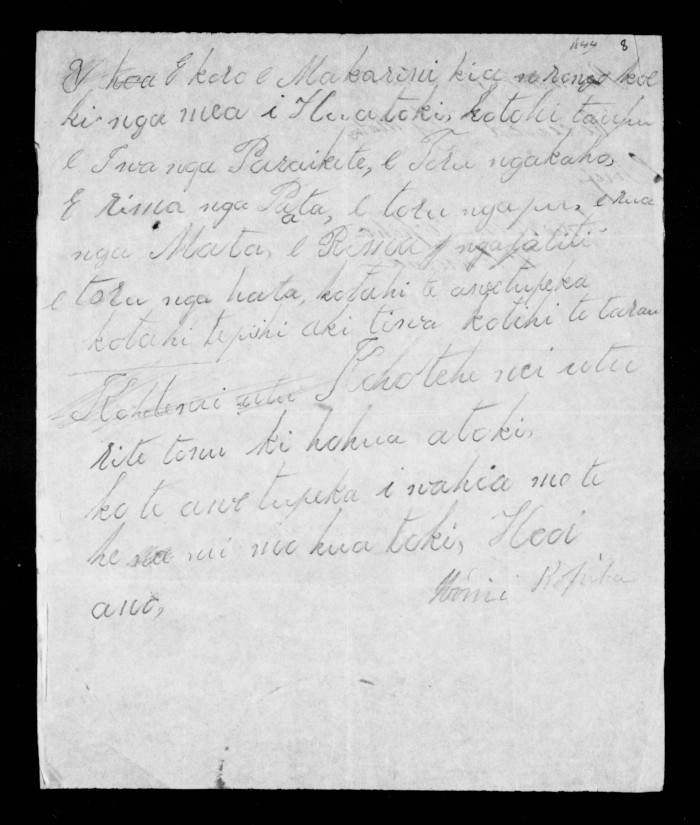 1144 8
E hoa E koro e Makarini kia rongo koe
ki nga mea i Huatoki, kotohi taupu
e Iwa nga Paraikete, e Toru ngakaho,
E rima nga Pata, e toru ngapu, e rua
nga Mata, e Rima ngapatiti
e toru nga hata, kotahi te awetupeka
kotahi tepihi aki tiwa kotehi te tarau
Kohtenai utu Kohotehe nei utu
rite tonu ki hohua atoki,
ko te awe tupeka i wahia mo te
he nui mo hua toki, Heoi
ano,